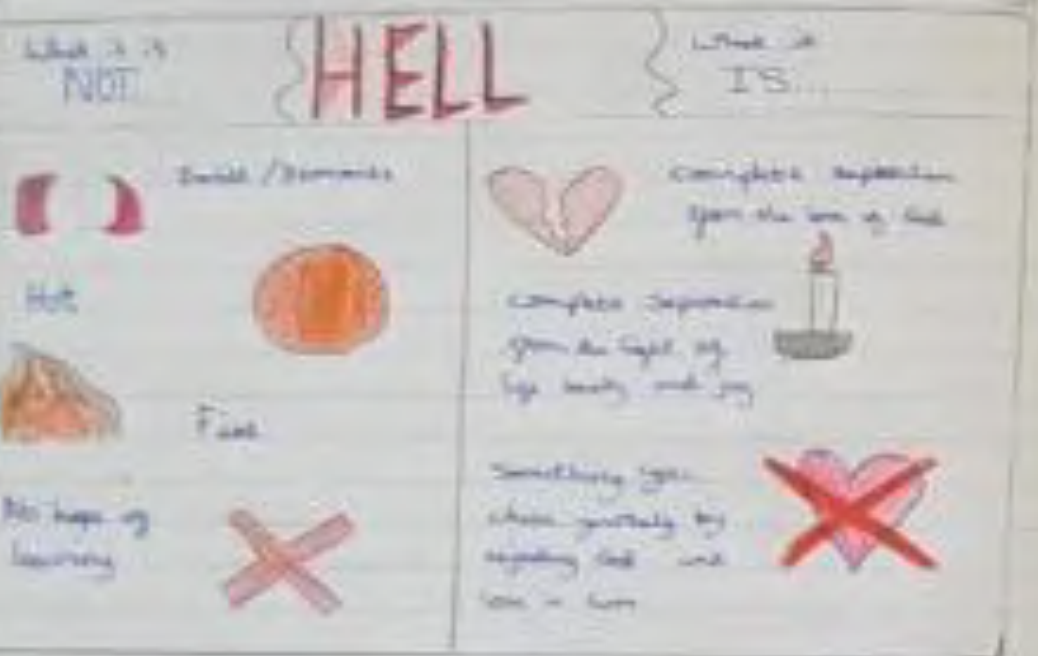 What it is
NOT
HELL
What it
IS...
Devils / Demons
Hot
Fire
No hope of
leaving
Complete separation
from the love of God
Complete separation
from the light of
life beauty and joy
Something you
chose yourself by
rejecting God and
love